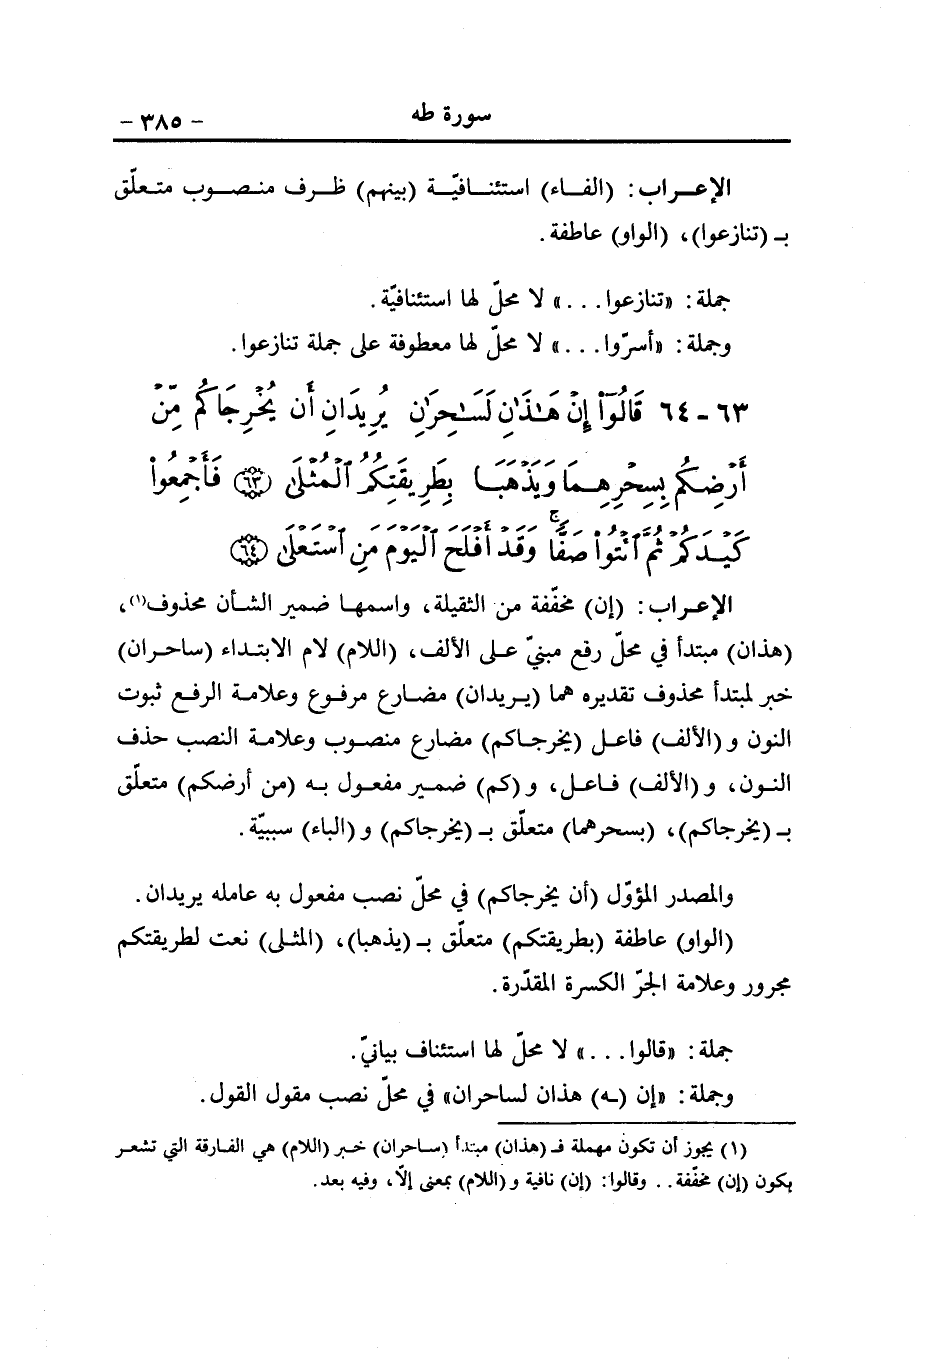 سورة طه - ٣٨٥ -
الإعراب: (الفاء) استئنافيّة (بينهم) ظرف منصوب متعلّق
بـ (تنازعوا)، (الواو) عاطفة.
جملة: «تنازعوا...» لا محلّ لها استئنافيّة.
وجملة: «أسرّوا...» لا محلّ لها معطوفة على جملة تنازعوا.
٦٣ - ٦٤ قَالُوٓا۟ إِنْ هَـٰذَٰنِ لَسَـٰحِرَٰنِ يُرِيدَانِ أَن يُخْرِجَاكُم مِّنْ
أَرْضِكُم بِسِحْرِهِمَا وَيَذْهَبَا بِطَرِيقَتِكُمُ ٱلْمُثْلَىٰ ﴿٦٣﴾ فَأَجْمِعُوا۟
كَيْدَكُمْ ثُمَّ ٱئْتُوا۟ صَفًّا ۚ وَقَدْ أَفْلَحَ ٱلْيَوْمَ مَنِ ٱسْتَعْلَىٰ ﴿٦٤﴾
الإعراب: (إن) مخفّفة من الثقيلة، واسمها ضمير الشأن محذوف(١)،
(هذان) مبتدأ في محلّ رفع مبنيّ على الألف، (اللام) لام الابتداء (ساحران)
خبر لمبتدأ محذوف تقديره هما (يريدان) مضارع مرفوع وعلامة الرفع ثبوت
النون و (الألف) فاعل (يخرجاكم) مضارع منصوب وعلامة النصب حذف
النون، و (الألف) فاعل، و (كم) ضمير مفعول به (من أرضكم) متعلّق
بـ (يخرجاكم)، (بسحرهما) متعلّق بـ (يخرجاكم) و (الباء) سببيّة.
والمصدر المؤوّل (أن يخرجاكم) في محلّ نصب مفعول به عامله يريدان.
(الواو) عاطفة (بطريقتكم) متعلّق بـ (يذهبا)، (المثلى) نعت لطريقتكم
مجرور وعلامة الجرّ الكسرة المقدّرة.
جملة: «قالوا...» لا محلّ لها استئناف بيانيّ.
وجملة: «إن (ـه) هذان لساحران» في محلّ نصب مقول القول.
(١) يجوز أن تكون مهملة فـ (هذان) مبتدأ (ساحران) خبر (اللام) هي الفارقة التي تشعر
يكون (إن) مخفّفة.. وقالوا: (إن) نافية و (اللام) بمعنى إلّا، وفيه بعد.